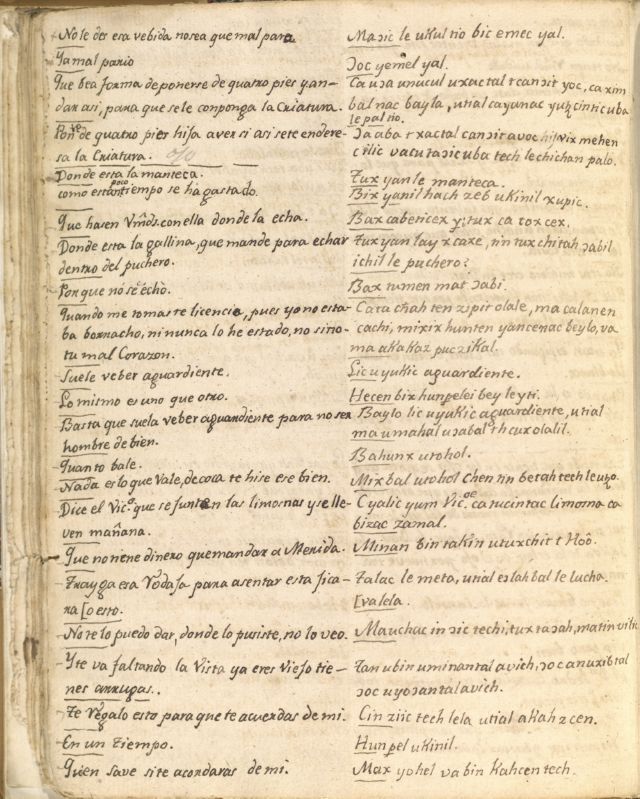 No le des esa vebida no sea que mal para. Maɔic le ukul tio bic emec yal.
Ya mal pario ɔoc yemel yal.
Que bea forma de ponerse de quatro pies y an- Ca uɔa unucul uxactal tcanɔit yoc, ca xim
dar asi, para que se le conponga la Criatura. bal nac bayla, utial cayanac yutzcinticuba
le pal tio.
Ponte de quatro pies hija aver si asi se te endere- ɔaaba txactal canɔit avoc hijvix mehen
sa la Criatura. cʼilic vacutaɔicuba tech lechichan palo.
Donde esta la manteca. Tux yan le manteca.
como es tan poco tiempo se ha gastado. Bix yanil hach zeb ukinil xupic.
Que hasen Vmds. con ella donde la echa. Bax cabeticex y; tux ca toxcex.
Donde esta la gallina, que mande para echar Tux yan lay xcaxe, tin tuxchitah ɔabil
dentro del puchero. ichil le puchero?
Por que no se echò. Bax tumen mat ɔabi.
Quando me tomaste licencia, pues yo no esta- Cata chah ten zipit olale, ma calanen
ba borracho, ni nunca lo he estado, no sino cachi, mixix hunten yancenac beylo, va
tu mal Corazon. ma akakaz puczikal.
Suele veber aguardiente. Lic uyukic aguardiente.
Lo mismo es uno que otro. Hecen bix hunpelei bey leyti.
Basta que suela veber aguardiente para no ser Baylo lic uyukic aguardiente, utial
hombre de bien. ma umahal uɔabal th cux olalil.
Quanto bale. Bahunx utohol.
Nada es lo que vale, de coca te hise ese bien. Mixbal utohol chen tin betah tech le utzo.
Dice el Vico. que se junten las limosnas y se lle- Cyalic yum Vicoe. ca tucintac limosna ca
ven mañana. bizac zamal.
Que no tiene dinero que mandar a Merida. Minan bin takin utuxchit t Hoô.
Trayga esa Vodasa para asentar esta jica- Talac le meta, utial eslahbal le lucha.
ra [o esto. [valela.
No te lo puedo dar, donde lo pusiste, no lo veo. Mauchac in ɔic techi, tux taɔah, matin vilic
Y te va faltando la Vista ya eres Viejo tie- Tan ubin uminantal avich, ɔoc anuxibtal
nes arrugas. ɔoc uyoɔantal avich.
Te Regalo esto para que te acuerdas de mi. Cin ziic tech lela utial akahzcen.
En un tiempo. Hunpel ukinil.
Quien save si te acordaras de mi. Max yohel va bin kahcen tech.